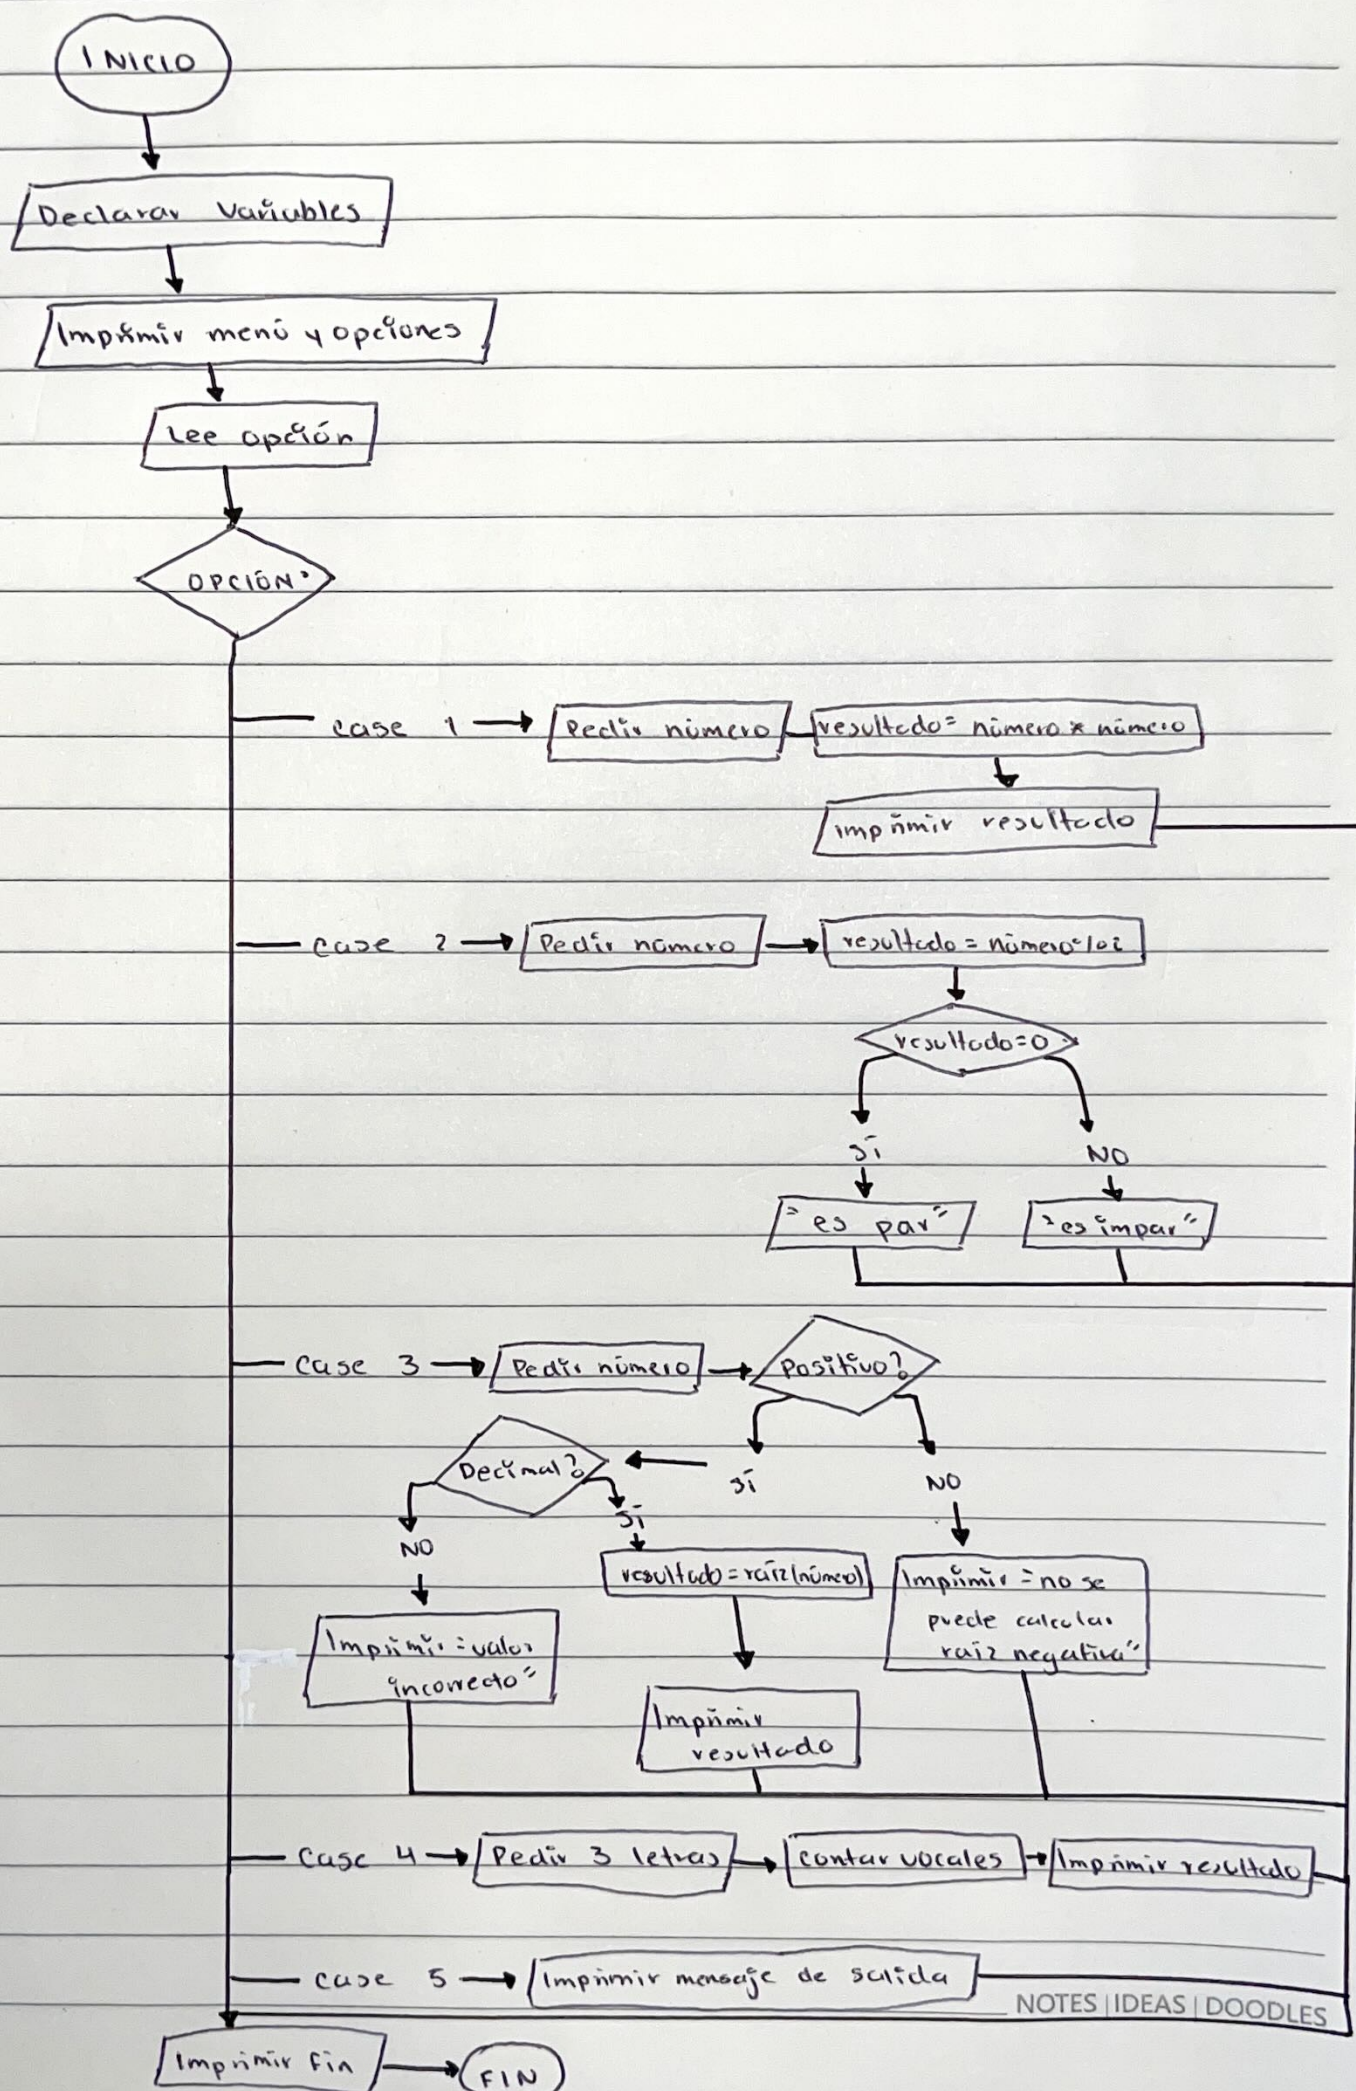 INICIO
Declarar variables
Imprimir menú y opciones
Lee opción
OPCIÓN?
case 1
Pedir número
resultado = número * número
imprimir resultado
case 2
Pedir número
resultado = número%2
resultado=0
Sí
NO
"es par"
"es impar"
case 3
Pedir número
Positivo?
Decimal?
Sí
NO
Sí
NO
resultado=raíz(número)
Imprimir "no se
puede calcular
raíz negativa"
Imprimir "valor
incorrecto"
Imprimir
resultado
case 4
Pedir 3 letras
contar vocales
Imprimir resultado
case 5
Imprimir mensaje de salida
NOTES | IDEAS | DOODLES
Imprimir fin
FIN